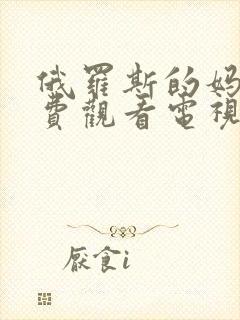 俄羅斯的媽
費觀看電視
厭食i